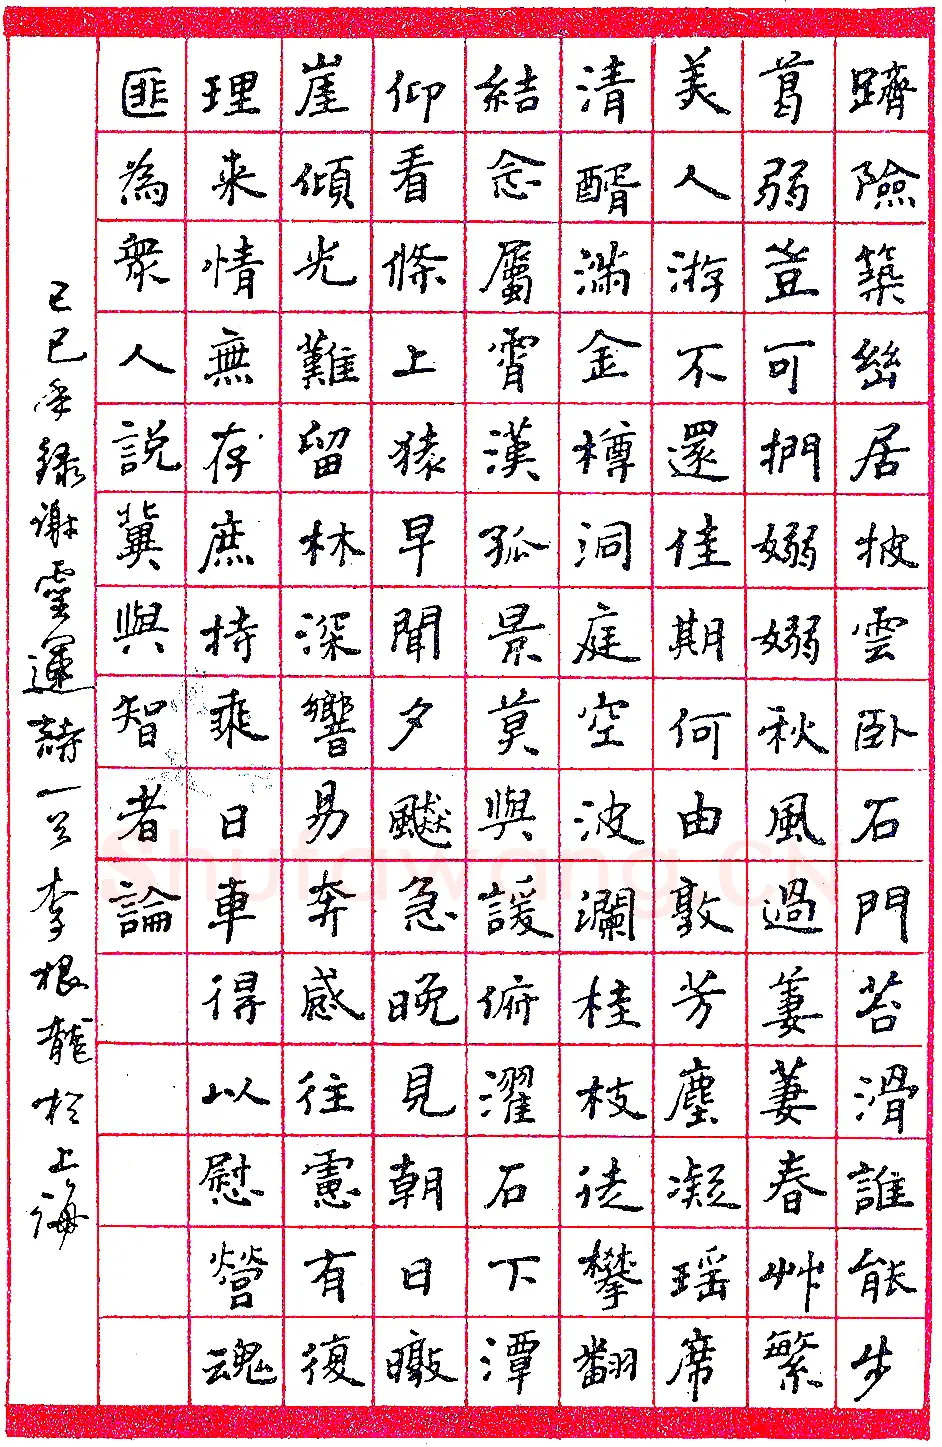 躋險築幽居披雲卧石門苔滑誰能步
葛弱豈可捫嫋嫋秋風過萋萋春艸繁
美人游不還佳期何由敦芳塵凝瑶席
清醑滿金樽洞庭空波瀾桂枝徒攀翻
結念屬霄漢孤景莫與諼俯濯石下潭
仰看條上猿早聞夕飈急晚見朝日暾
崖傾光難留林深響易奔感往慮有復
理来情無存庶持乘日車得以慰營魂
匪為衆人説冀與智者論
己巳年録謝靈運詩一首李根龍於上海
Shufawang.CN